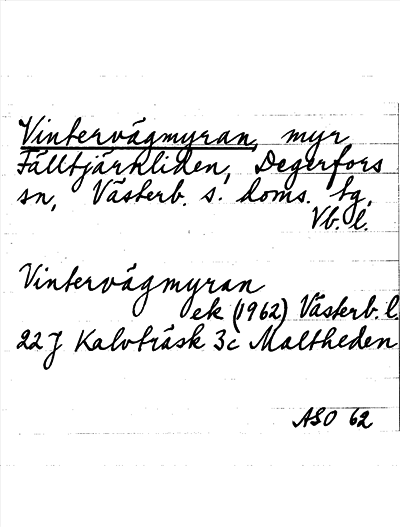 Vintervägmyran, myr
Fälltjärnliden, Degerfors
sn, Västerb. s. doms. tg.
Vb. l.
Vintervägmyran
ek (1962) Västerb. l.
22 J Kalvträsk 3c Maltheden
ASO 62